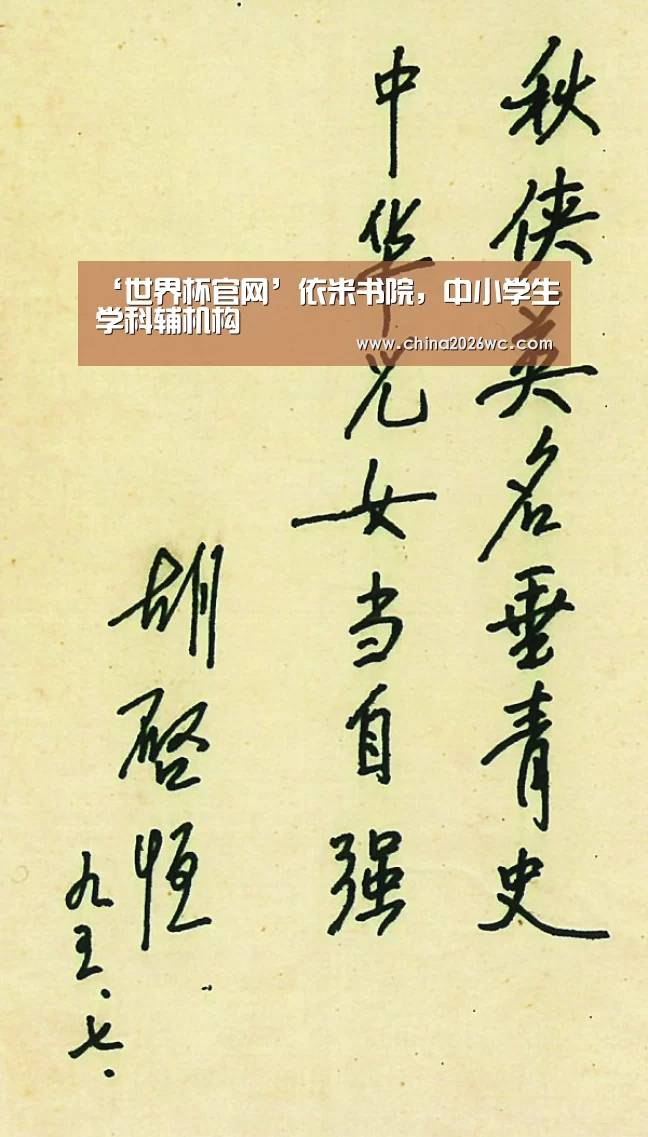 秋侠英名垂青史
中华儿女当自强
胡启恒
九五.七.
‘世界杯官网’依米书院，中小学生
学科辅机构
www.china2026wc.com